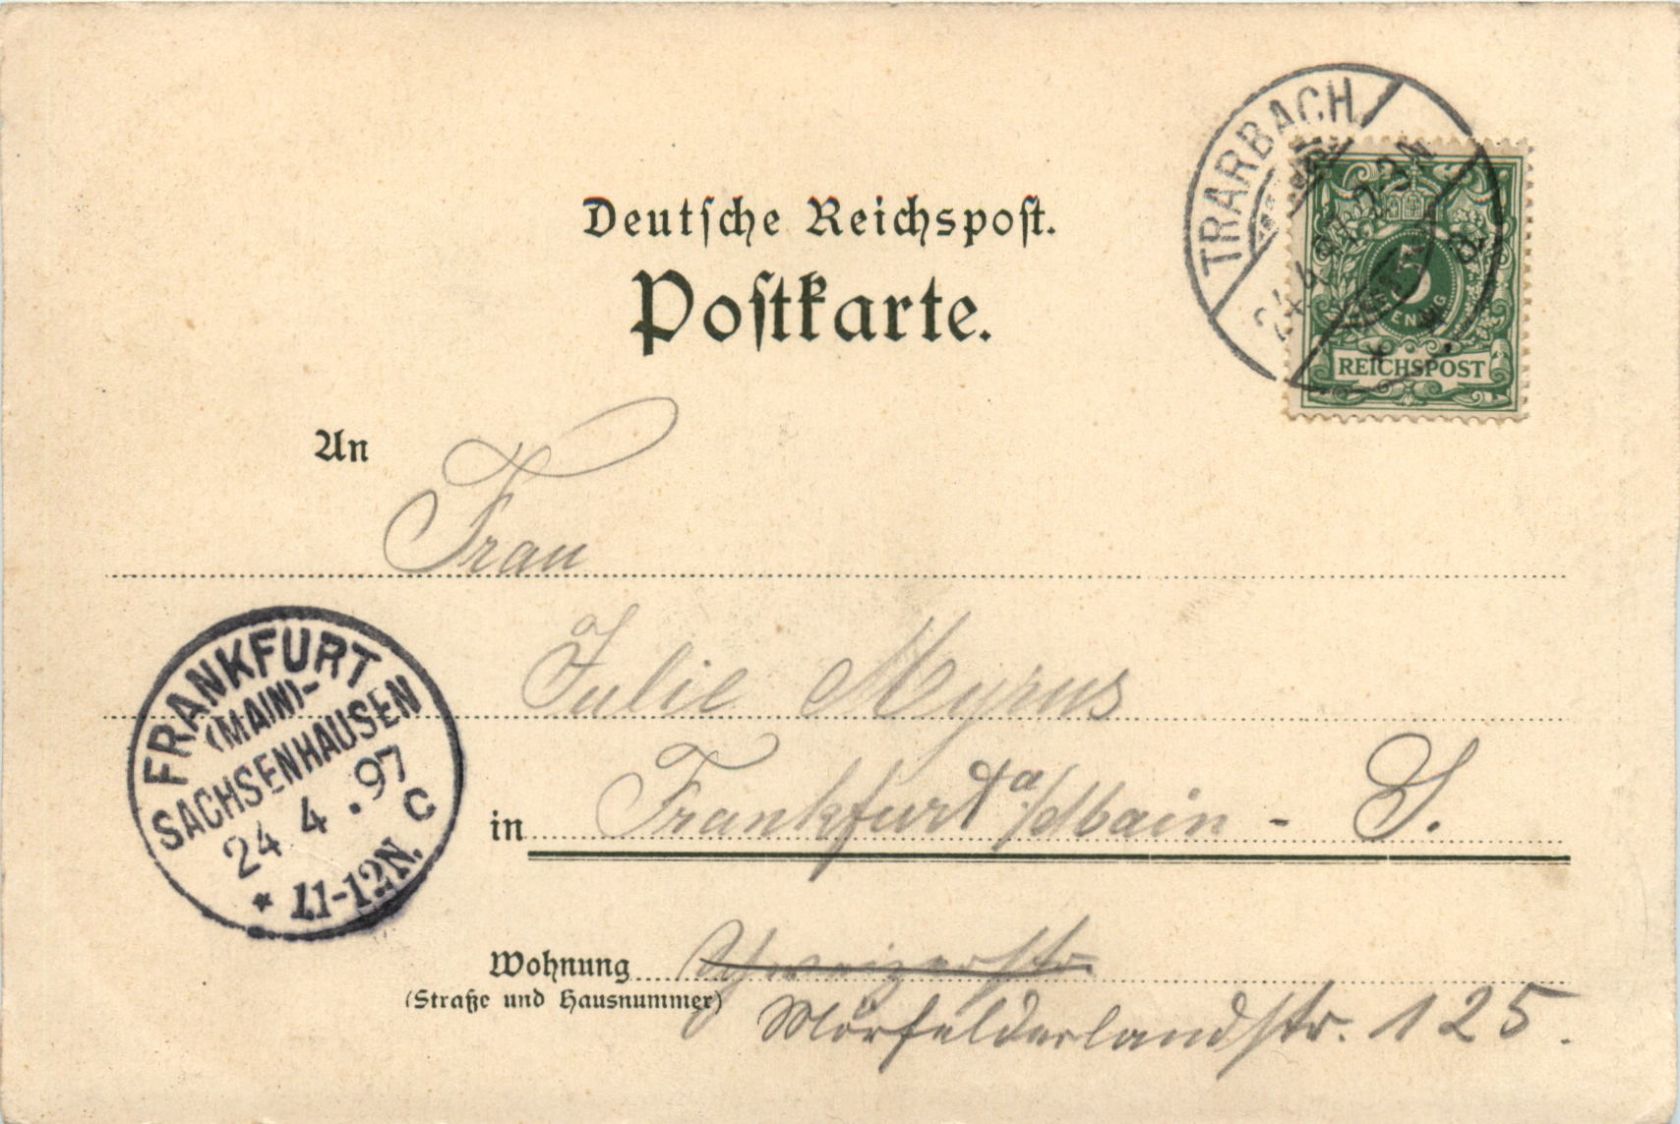 Deutsche Reichspost.
Postkarte.
TRARBACH
24.4.97. 2-3N
a
5
REICHSPOST
An
Frau
Julie Myrus
in Frankfurt a/Main - S.
FRANKFURT
(MAIN)-
SACHSENHAUSEN
24 4 .97
C
* 11-12N.
Wohnung Schweizerstr.
(Straße und Hausnummer)
Mörfelderlandstr. 125.